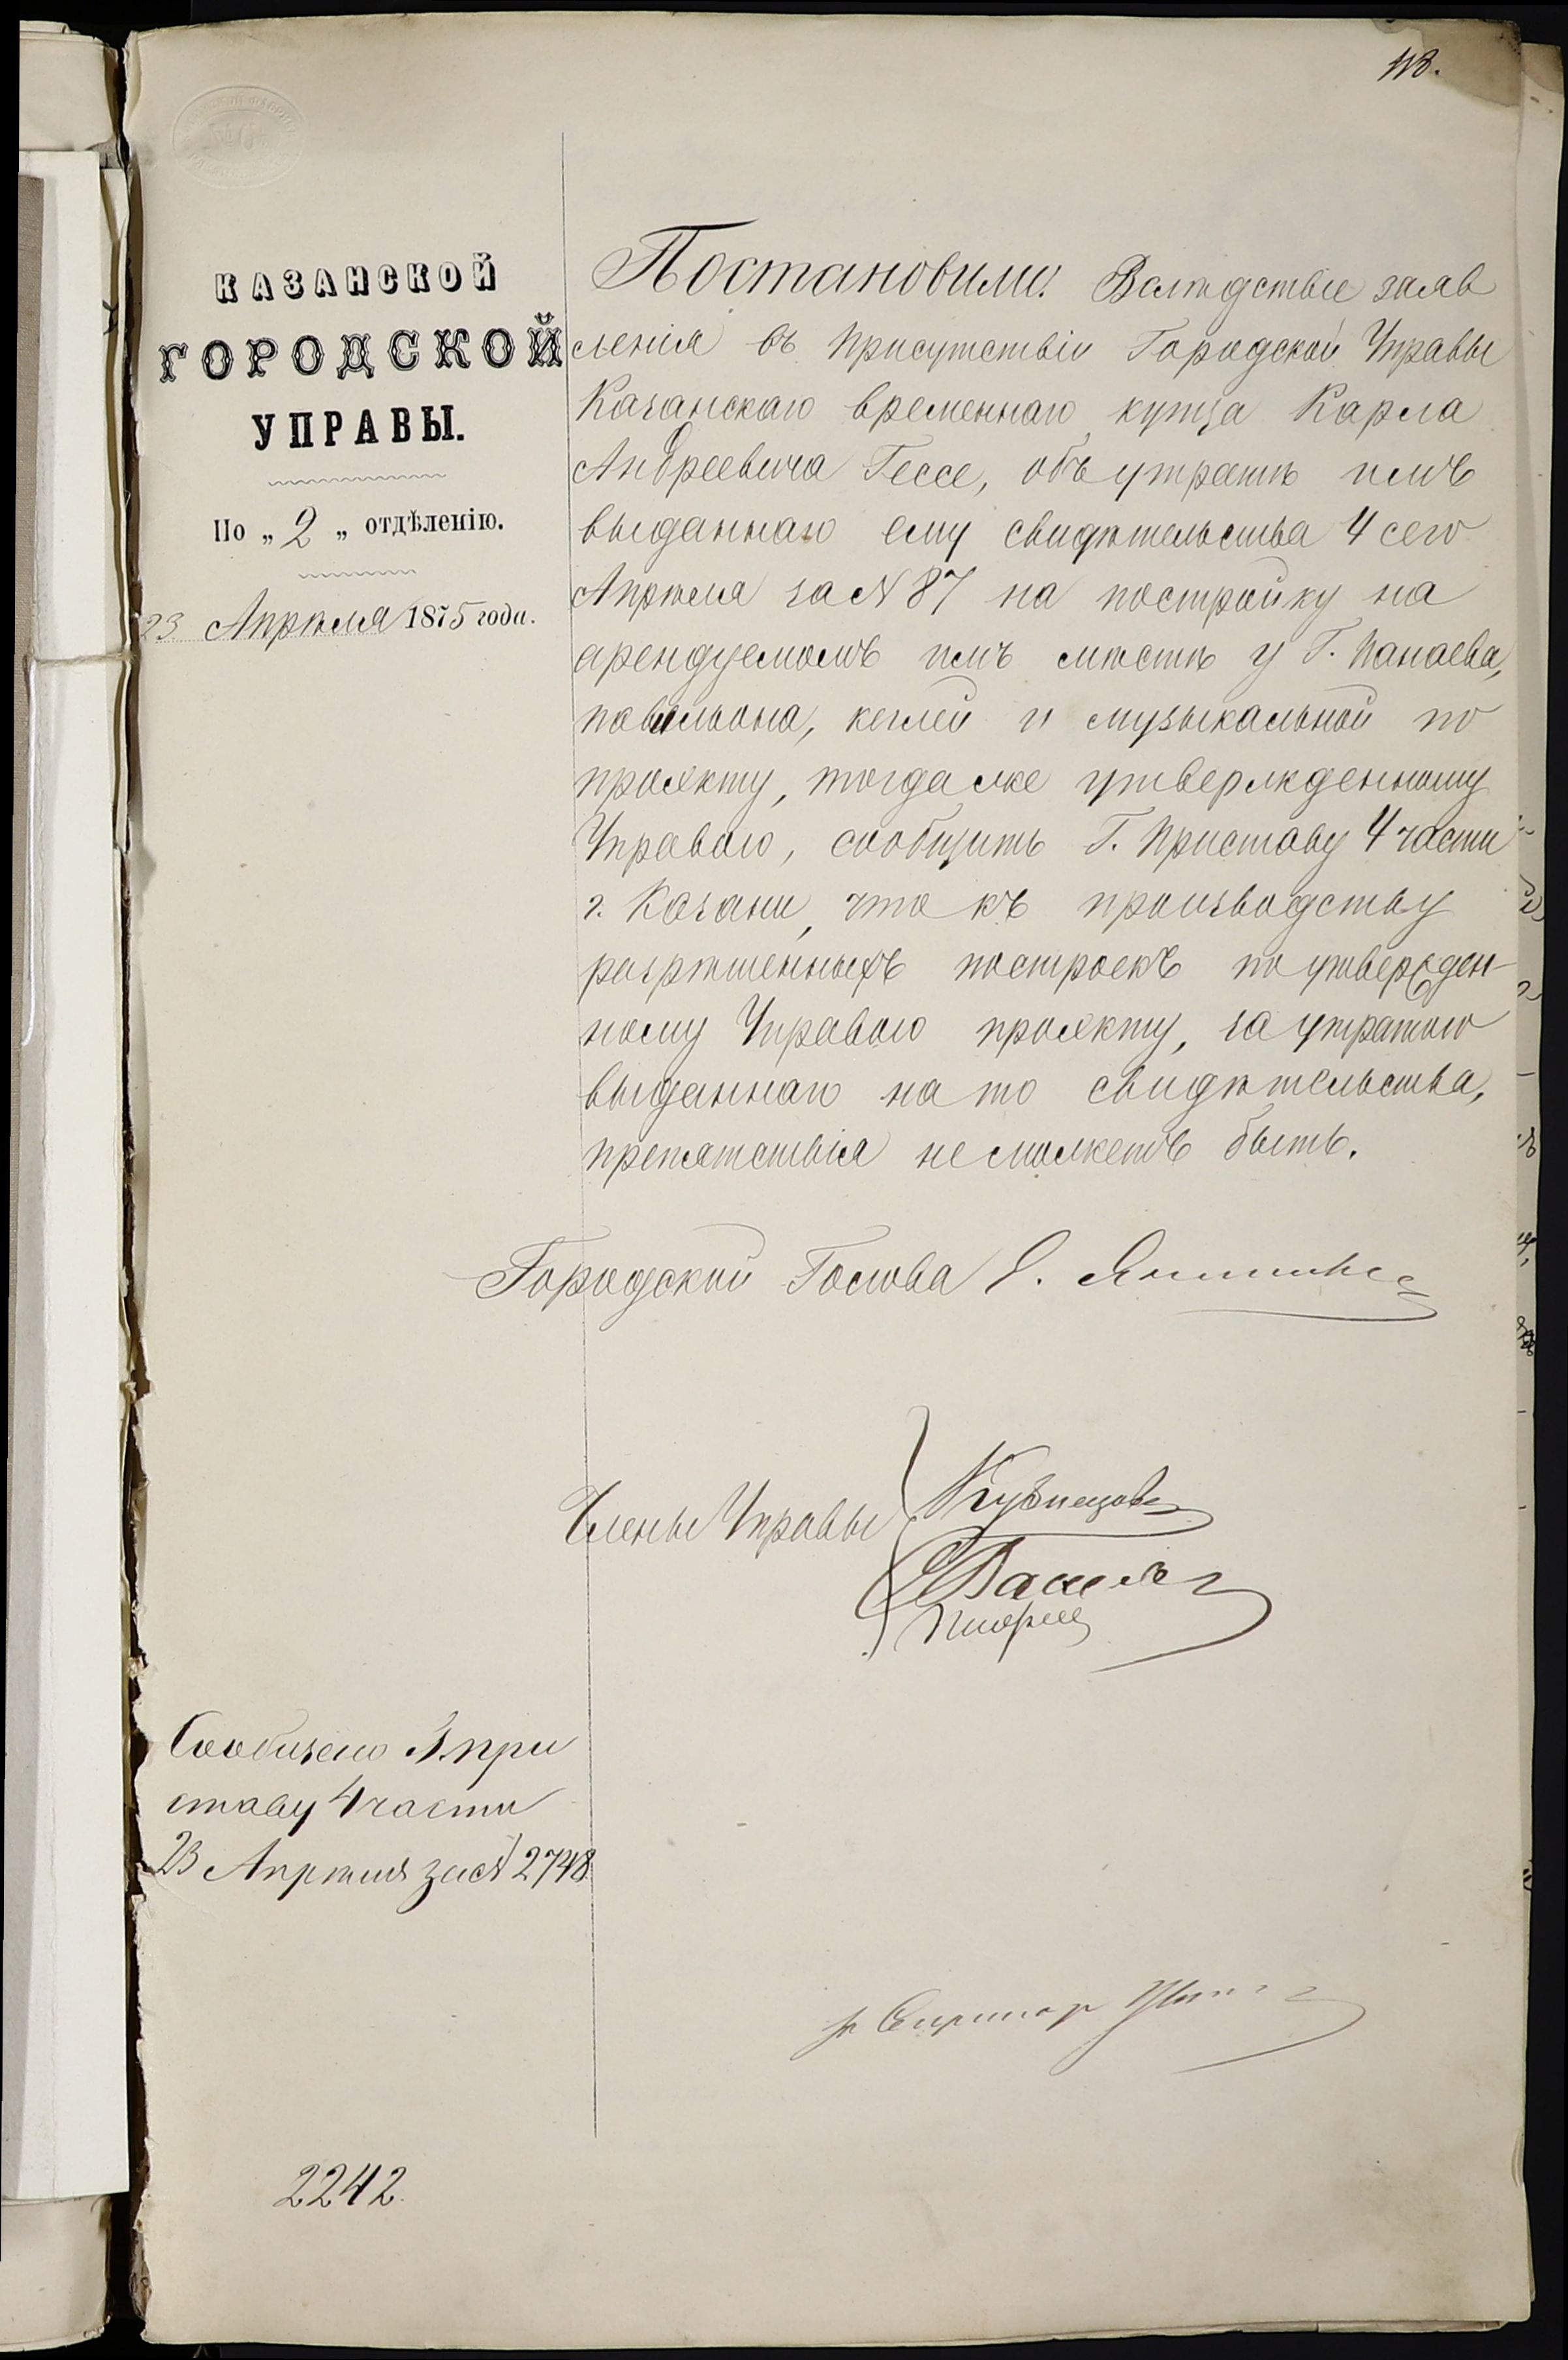 118.
КАЗАНСКОЙ
ГОРОДСКОЙ
УПРАВЫ.
По „ 2 „ отдѣленію.
23 Апрѣля 1875 года.
Постановили: Вслѣдствіе заяв
ленія въ присутствіи Городской Управы
Казанскаго временнаго купца Карла
Андреевича Гессе, объ утратѣ имъ
выданнаго ему свидѣтельства 4 сего
Апрѣля за № 87 на постройку на
арендуемомъ имъ мѣстѣ у Г. Панаева,
павильона, кеглей и музыкальной по
проэкту, тогда же утвержденному
Управою, сообщить Г. Приставу 4 части
г. Казани, что къ производству
разрѣшенныхъ построекъ по утвержден-
ному Управою проэкту, за утратою
выданнаго на то свидѣтельства,
препятствія не можетъ быть.
Городской Голова
Члены Управы
Кузнецовъ
Сообщено Г. при
ставу 4 части
23 Апрѣля за № 2748
Секретарь
2242.